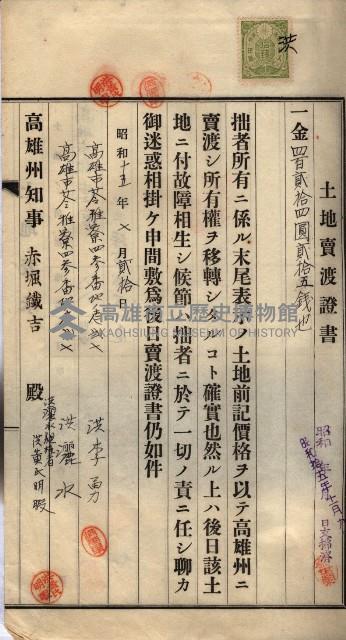 土地賣渡證書
一金四百貳拾四圓貳拾五錢也
拙者所有ニ係ル末尾表示ノ土地前記價格ヲ以テ高雄州ニ
賣渡シ所有權ヲ移轉シタルコト確實也然ル上ハ後日該土
地ニ付故障相生シ候節ハ拙者ニ於テ一切ノ責ニ任シ聊カ
御迷惑相掛ケ申間敷爲後日賣渡證書仍如件
昭和十五年 七月貳拾日
高雄市苓雅寮四參番地
洪李勇
高雄市苓雅寮四參番地
洪灑水
高雄州知事 赤堀鐵吉 殿
洪
高雄市立歷史博物館
KAOHSIUNG MUSEUM OF HISTORY